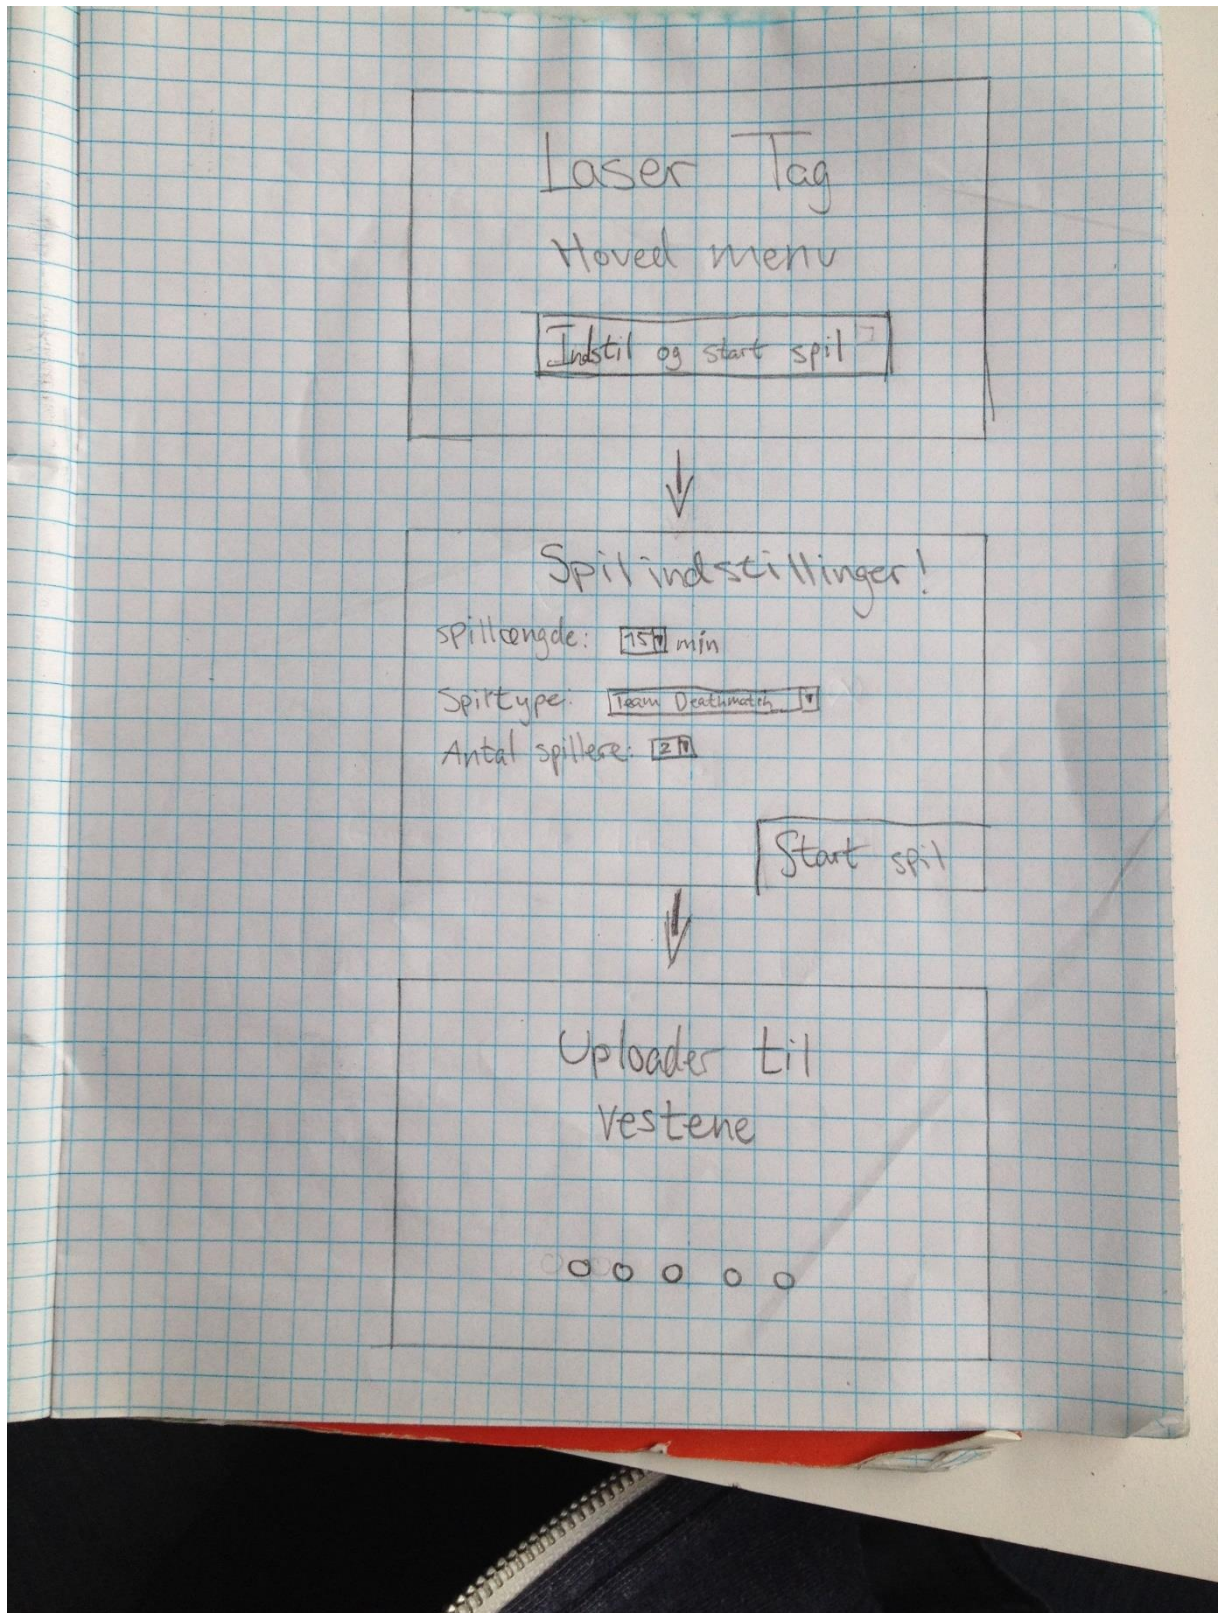 Laser Tag
Hoved menu
Indstil og start spil
Spilindstillinger!
spillængde: 15 min
Spiltype: Team Deathmatch
Antal spillere: 2
Start spil
Uploader til
vestene